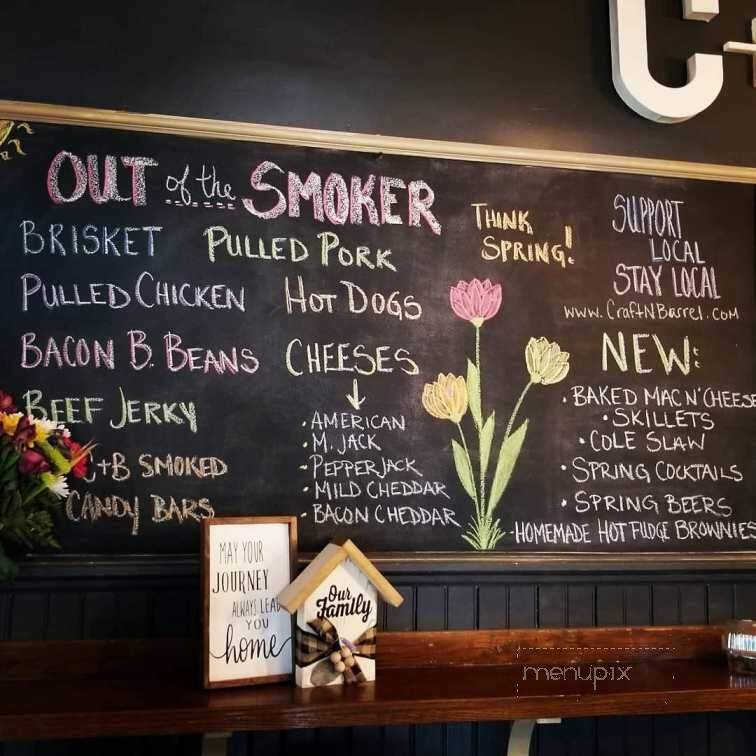 C+
OUT of the SMOKER
BRISKET PULLED PORK
PULLED CHICKEN HOT DOGS
BACON B. BEANS CHEESES
BEEF JERKY
C+B SMOKED
CANDY BARS
• AMERICAN
• M. JACK
• PEPPERJACK
• MILD CHEDDAR
• BACON CHEDDAR
THINK
SPRING!
SUPPORT
LOCAL
STAY LOCAL
www.CraftNBarrel.com
NEW:
• BAKED MAC N' CHEESE
• SKILLETS
• COLE SLAW
• SPRING COCKTAILS
• SPRING BEERS
• HOMEMADE HOT FUDGE BROWNIES
MAY YOUR
JOURNEY
ALWAYS LEAD
YOU
home
Our
Family
menupix